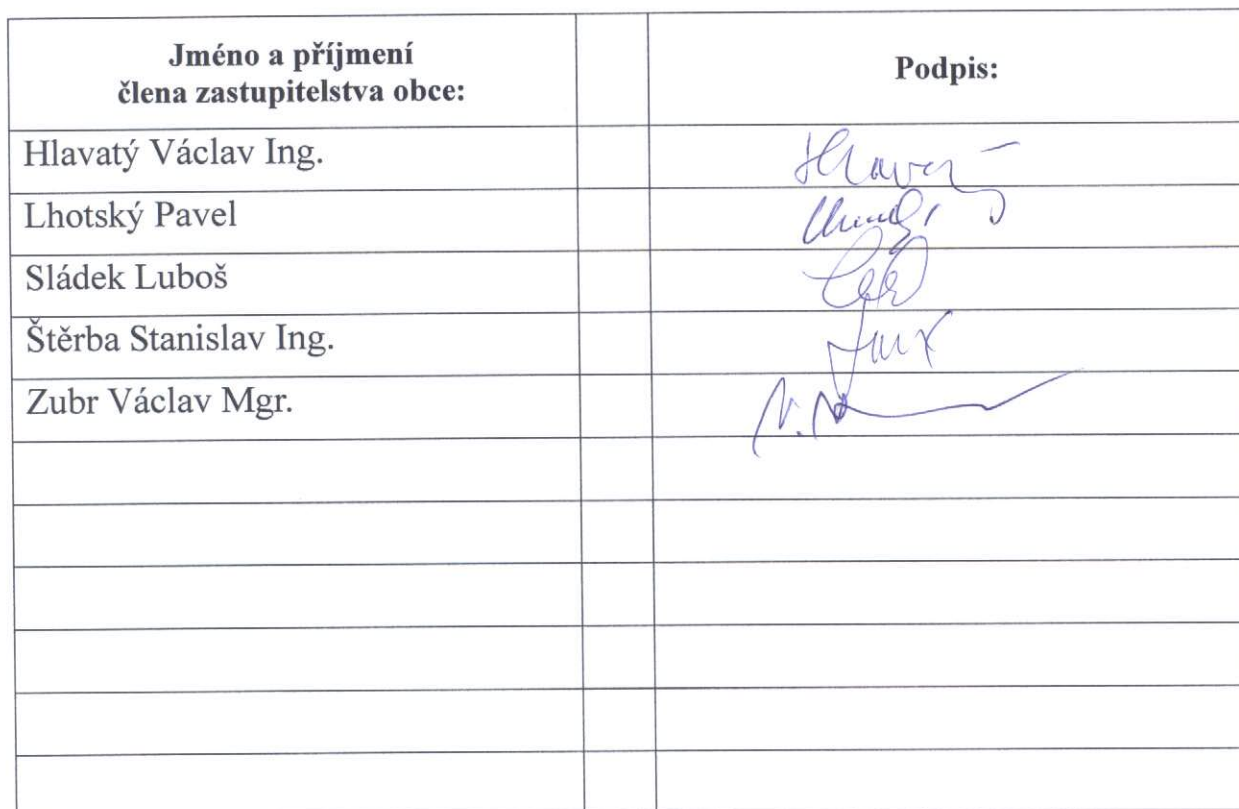 Jméno a příjmení
člena zastupitelstva obce:
Podpis:
Hlavatý Václav Ing.
Lhotský Pavel
Sládek Luboš
Štěrba Stanislav Ing.
Zubr Václav Mgr.